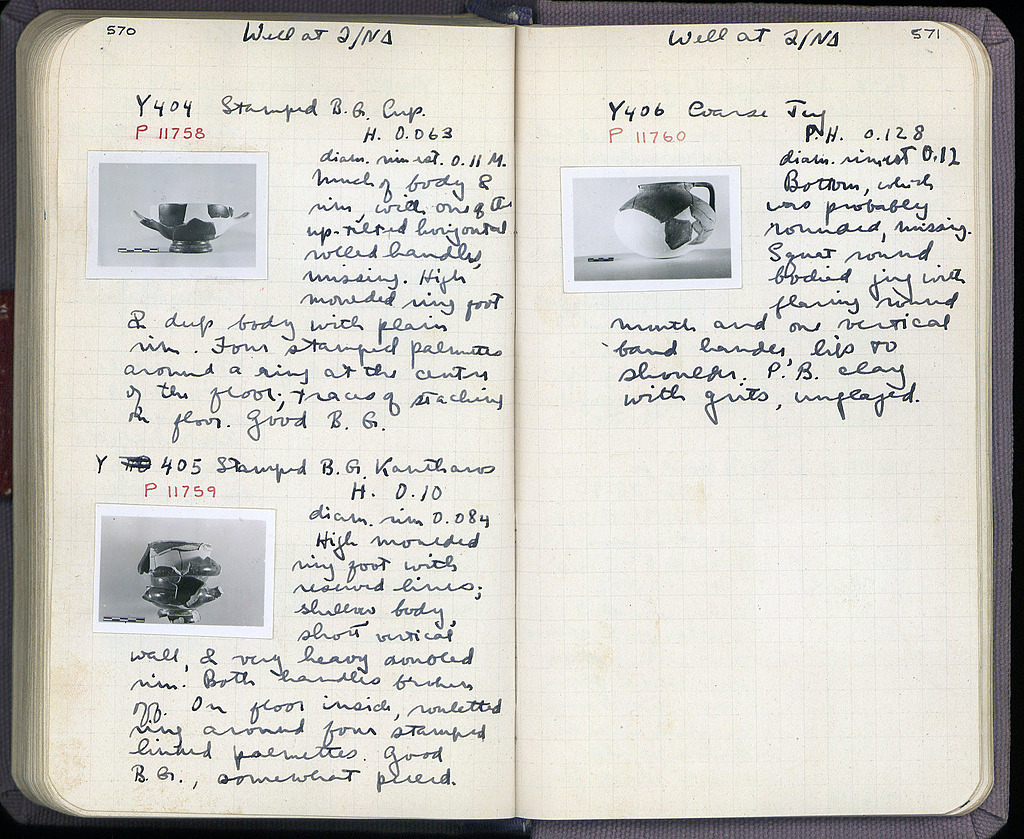 570
Well at 2/ΝΔ
Y404 Stamped B.G. Cup.
P 11758
H. 0.063
diam. rim est. 0.11 M.
Much of body &
rim, with one of the
up-tilted horizontal
rolled handles,
missing. High
moulded ring foot
& deep body with plain
rim. Four stamped palmettes
around a ring at the centre
of the floor; traces of stacking
on floor. Good B.G.
Y 405 Stamped B.G. Kantharos
P 11759
H. 0.10
diam. rim 0.084
High moulded
ring foot with
reserved lines;
shallow body,
short vertical
wall, & very heavy
rim. Both handles broken
off. On floor inside, rouletted
ring around four stamped
linked palmettes. Good
B.G., somewhat peeled.
571
Well at 2/ΝΔ
Y406 Coarse Jug
P 11760
P.H. 0.128
diam. rim est 0.12
Bottom, which
was probably
rounded, missing.
Squat round
bodied jug with
flaring round
mouth and one vertical
band handle, lip to
shoulder. P.B. clay
with grits, unglazed.